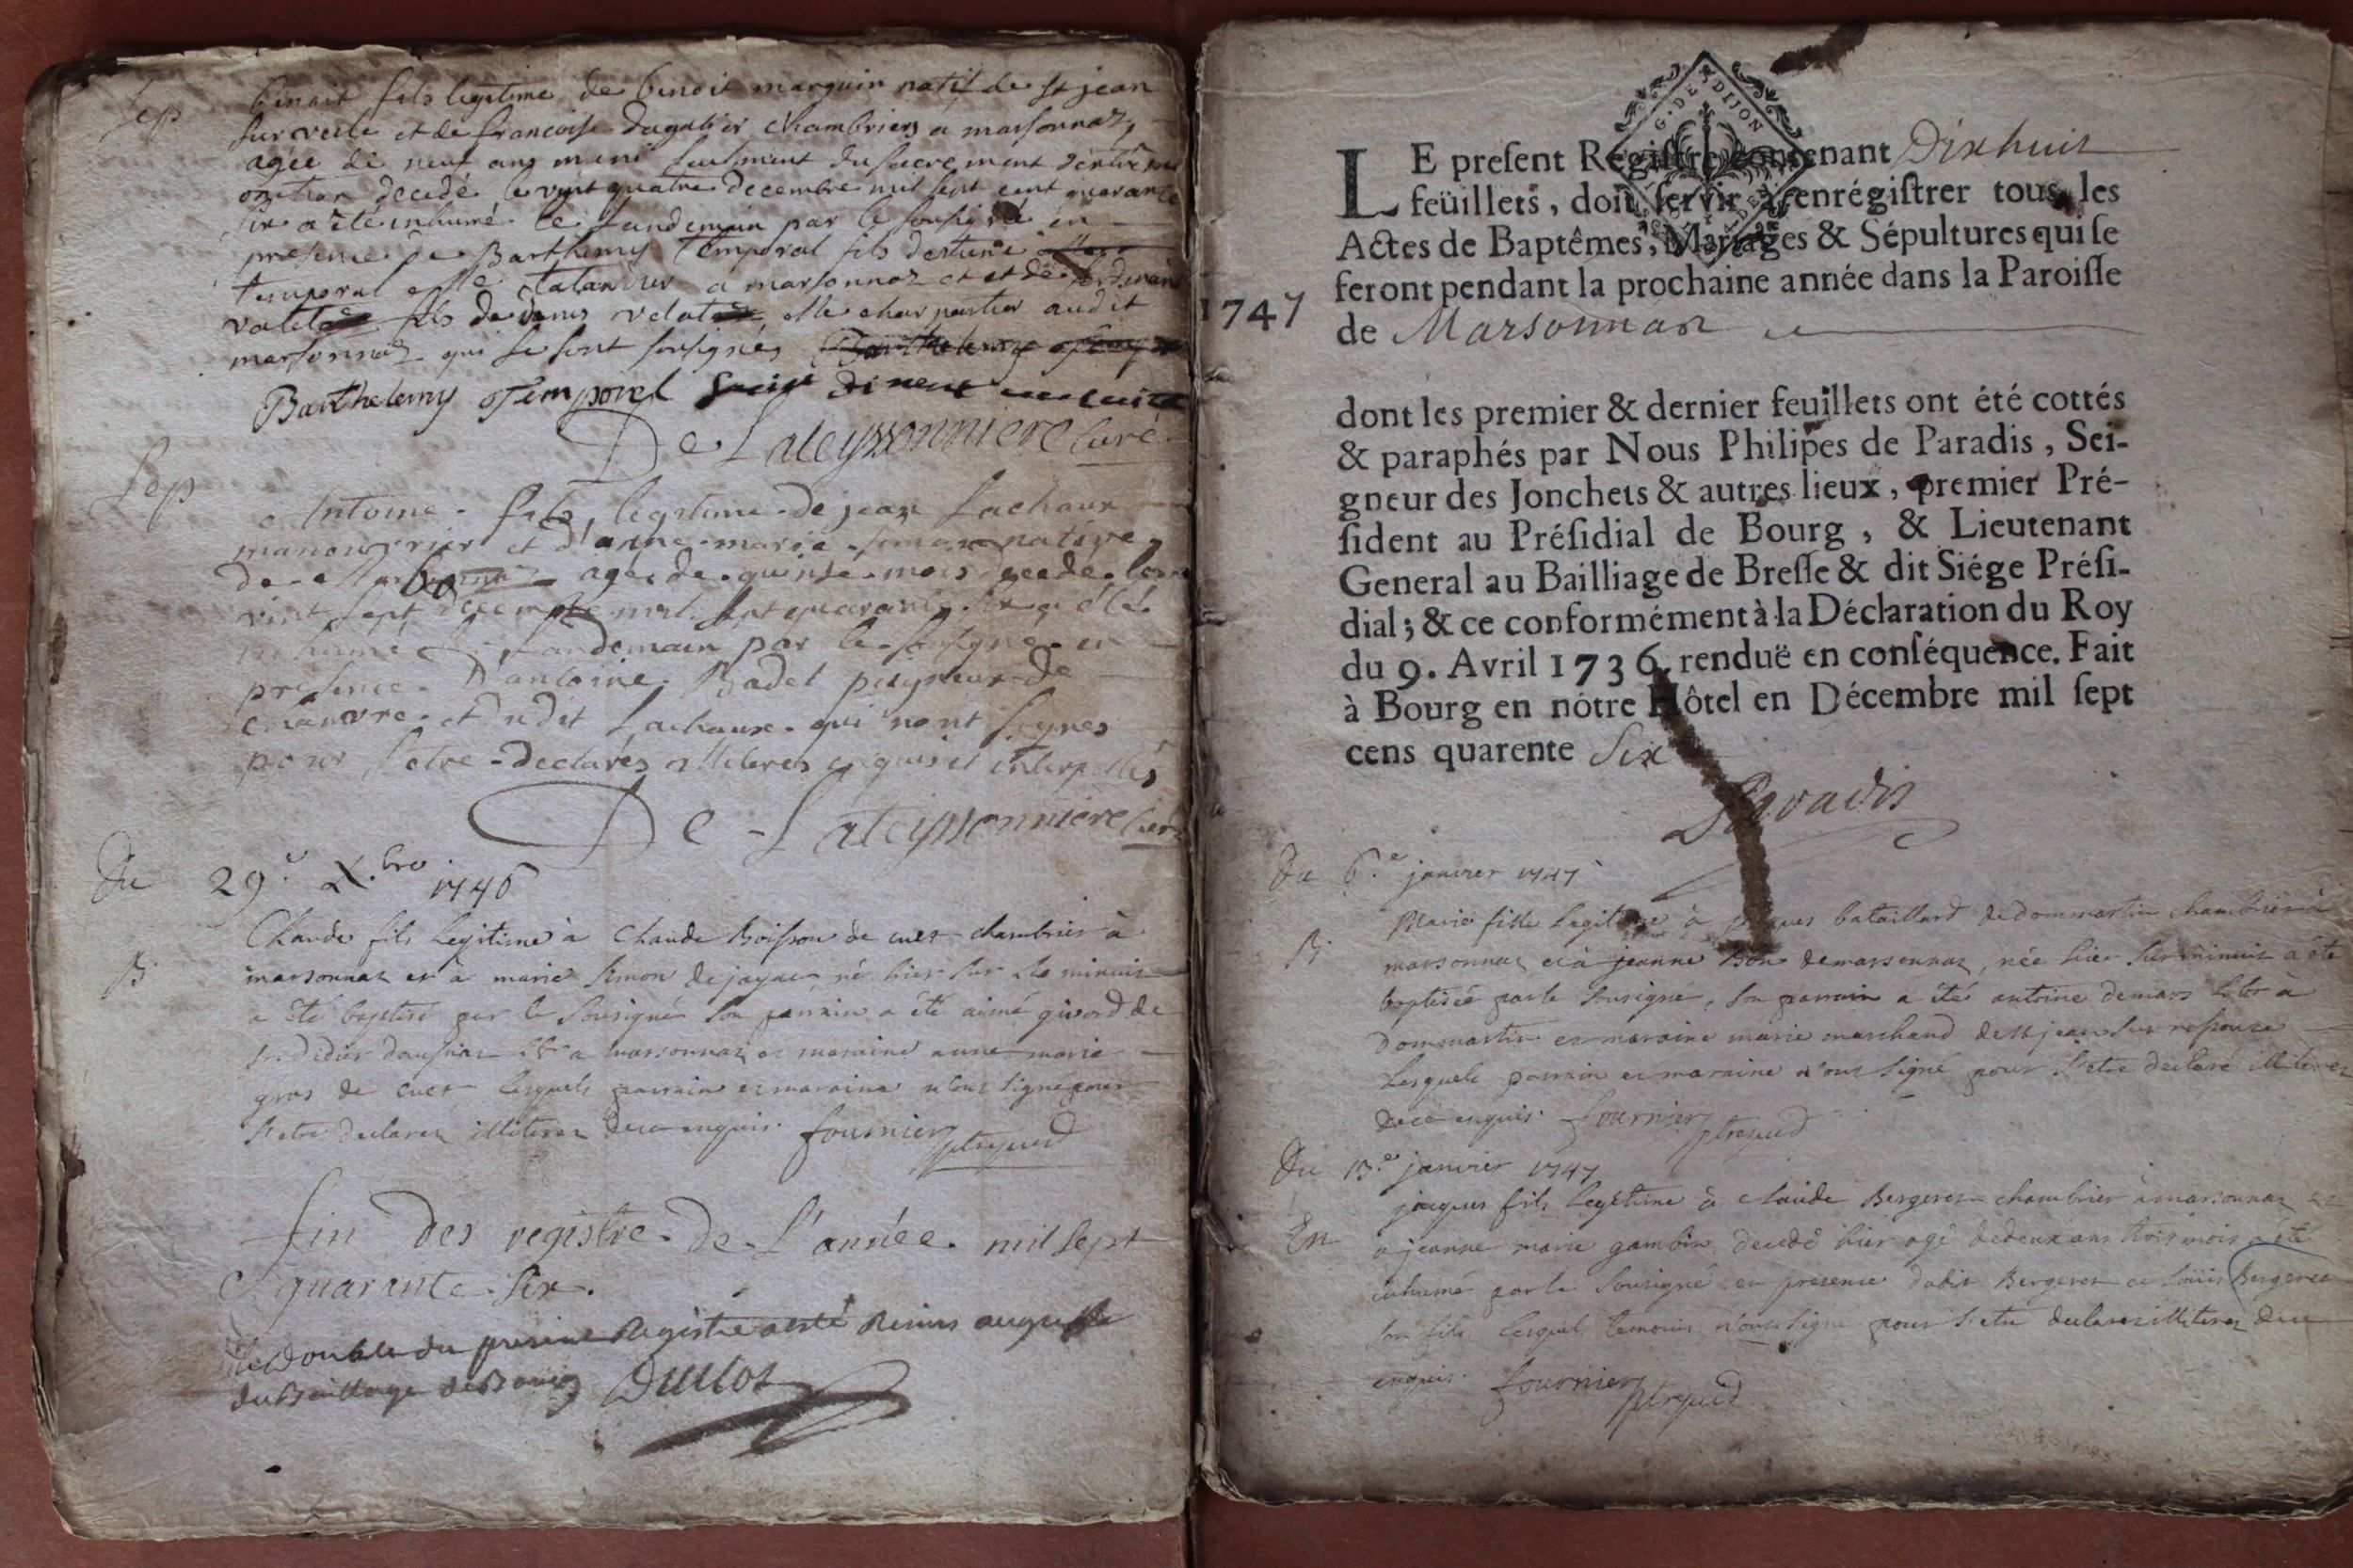 Sep
benoit fils legitime de benoit marguin natif de st jean
sur veile et de francoise dagalier chambriers a marsonnaz,
agée de neuf ans muni seulment du sacrement
decedé le vint quatre decembre mil sept cent quarante
six a été inhumé le landemain par le soussigné en
presence de Barthemy Temporal fils d'estiene
temporal a marsonnaz et et de
fils de denis velat charpantier audit
marsonnaz qui se sont sousignés
Barthelemy Temporel
De Lateyssonniere Curé
Sep
Antoine fils legitime de jean Lachaux
manouvrier et d'anne marie simon native
de agé de quinse mois decede le
vint sept decembre mil sept quarante six a été
inhumé le landemain par le sousigné en
presence d'antoine Badel peigneur de
chanvre et dudit Lachaux qui nont signes
pour s'etre declarés illiteres enquis et interpellés
De Lateyssonniere Curé
Du 29.e X.bre 1746
B
Claude fils legitime à Claude Boisson de cuet chambrier à
marsonnaz et à marie simon de jayac né hier sur le minuit
a été baptisé par le sousigné son parrain a été aimé givord de
st didier daussiat à marsonnaz et maraine anne marie
gros de cuet lesquels parrain et maraine n'ont signé pour
s'etre declarez illiterez de ce enquis. fournier
fin des registre de L'année mil sept
C quarante six.
Le double du present Registre a esté Remis au greffe
du Bailliage de Bourg Duclot
G. DE DIJON
LE present Registre contenant Dixhuit
feüillets, doit servir à enrégistrer tous les
Actes de Baptêmes, Mariages & Sépultures qui se
feront pendant la prochaine année dans la Paroisse
1747
de Marsonnaz
dont les premier & dernier feuillets ont été cottés
& paraphés par Nous Philipes de Paradis, Sei-
gneur des Jonchets & autres lieux, premier Pré-
sident au Présidial de Bourg, & Lieutenant
General au Bailliage de Bresse & dit Siége Prési-
dial; & ce conformément à la Déclaration du Roy
du 9. Avril 1736. renduë en conséquence. Fait
à Bourg en nôtre Hôtel en Décembre mil sept
cens quarente Six
Paradis
Du 6.e janvier 1747
B.
Marie fille legitime à jaques bataillard de dommartin chambrier à
marsonnaz et à jeanne Bon de marsonnaz, née hier sur minuit a été
baptisée par le sousigné, son parrain a été antoine demars à
dommartin et maraine marie marchand de st jean sur ressouze
lesquels parrain et maraine n'ont signé pour s'etre declaré illiterez
de ce enquis. fournier
Du 13.e janvier 1747
En
jaques fils legitime à claude Bergeret chambrier à marsonnaz et
a jeanne marie gambin decedé hier agé de deux ans trois mois a été
inhumé par le sousigné en presence dudit Bergeret et Loüis Bergeret
son fils lesquels temoins n'ont signé pour s'etre declarez illiterez de ce
enquis. fournier